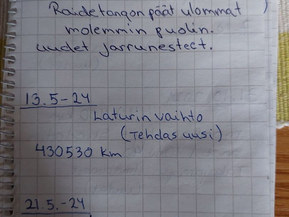 Raidetangon päät ulommat
molemmin puolin.
uudet jarrunesteet.
13.5-24
Laturin vaihto
(Tehdas uusi)
430530 km
21.5.-24